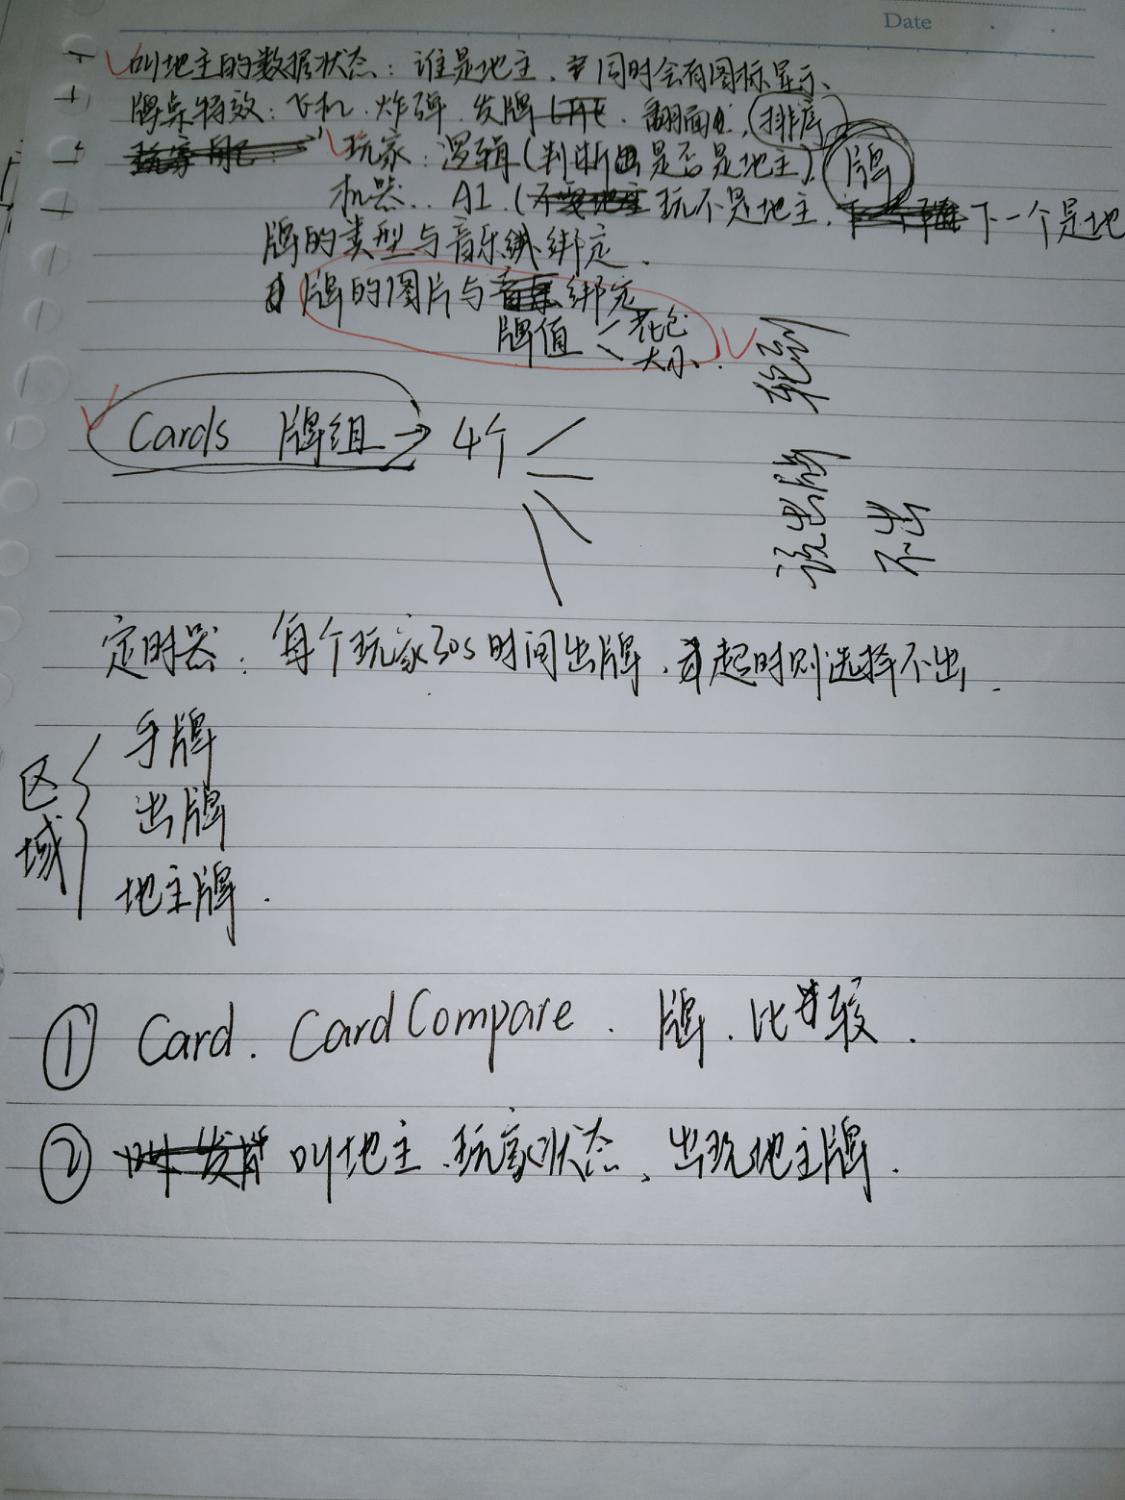 Date
叫地主的数据状态：谁是地主、同时会有图标显示、
牌桌特效：飞机、炸弹、发牌、翻面、排序
玩家：逻辑（判断出是否是地主） 牌
机器：AI（玩不是地主，下一个是地
牌的类型与音乐绑定．
牌的图片与绑定
牌值 花色
大小．
轮到
Cards 牌组 → 4个
该出牌
不出
定时器：每个玩家30s时间出牌、超时则选择不出．
区域
手牌
出牌
地主牌．
① Card．CardCompare．牌．比较．
② 叫地主、玩家状态、出现地主牌．